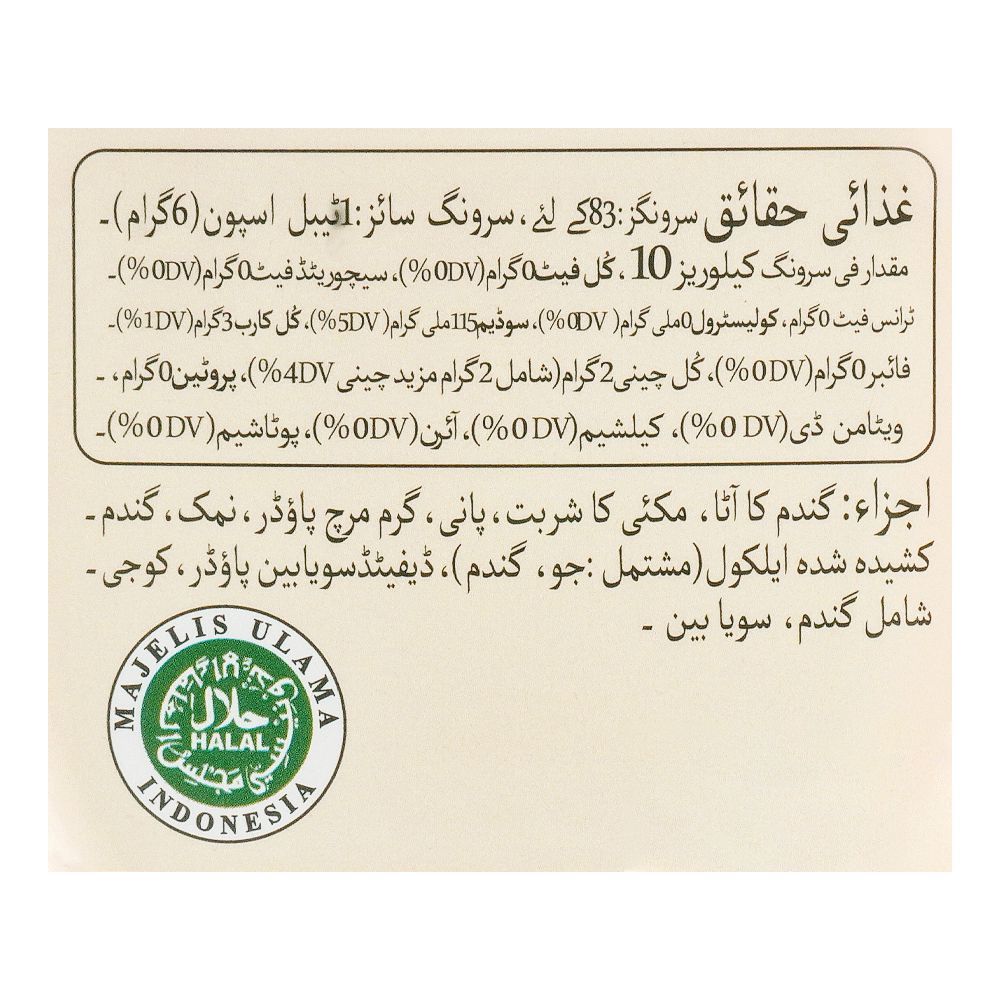 غذائی حقائق سرونگز:83کے لئے، سرونگ سائز:1ٹیبل اسپون(6گرام)۔
مقدار فی سرونگ کیلوریز 10، کُل فیٹ0گرام(0DV%)، سیچوریٹڈ فیٹ0گرام(0DV%)۔
ٹرانس فیٹ 0گرام، کولیسٹرول0ملی گرام(0DV%)، سوڈیم115ملی گرام(5DV%)، کُل کارب3گرام(1DV%)۔
فائبر0گرام(0DV%)، کُل چینی2گرام(شامل 2گرام مزید چینی 4DV%)، پروٹین0گرام، ۔
ویٹامن ڈی(0DV%)، کیلشیم(0DV%)، آئرن(0DV%)، پوٹاشیم(0DV%)۔
اجزاء: گندم کا آٹا، مکئی کا شربت، پانی، گرم مرچ پاؤڈر، نمک، گندم۔
کشیدہ شدہ ایلکول(مشتمل :جو، گندم)، ڈیفیٹڈسویابین پاؤڈر، کوجی۔
شامل گندم، سویا بین ۔
MAJELIS ULAMA
حلال
HALAL
INDONESIA